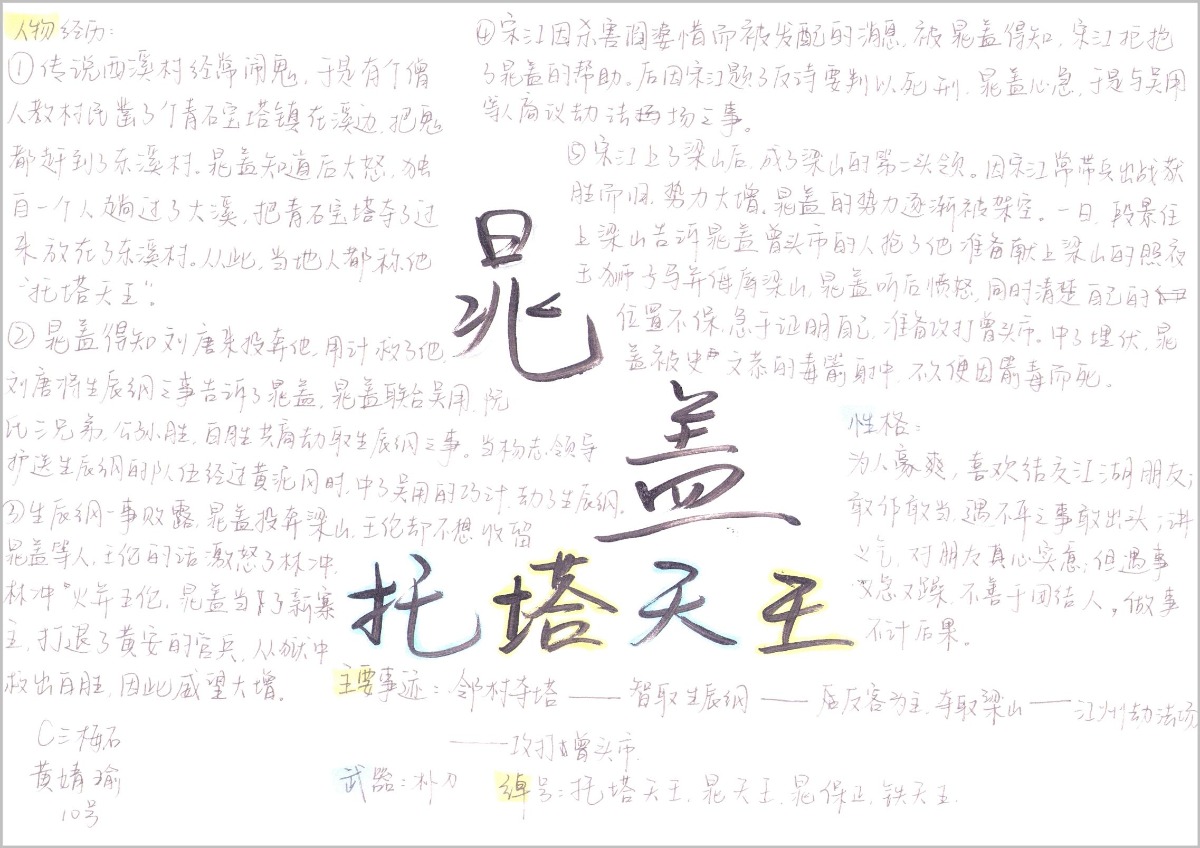 人物经历:
①传说西溪村经常闹鬼，于是有个僧
人教村民凿了个青石宝塔镇在溪边,把鬼
都赶到了东溪村。晁盖知道后大怒,独
自一个人趟过了大溪,把青石宝塔夺了过
来放在了东溪村。从此,当地人都称他
“托塔天王”。
②晁盖得知刘唐来投奔他,用计救了他,
刘唐将生辰纲之事告诉了晁盖,晁盖联合吴用,阮
氏三兄弟,公孙胜,白胜共商劫取生辰纲之事。当杨志领导
护送生辰纲的队伍经过黄泥冈时,中了吴用的巧计,劫了生辰纲.
③生辰纲一事败露,晁盖投奔梁山,王伦却不想收留
晁盖等人,王伦的话激怒了林冲,
林冲火并王伦,晁盖当了新寨
主,打退了黄安的官兵,从狱中
救出白胜,因此威望大增。
④宋江因杀害阎婆惜而被发配的消息,被晁盖得知,宋江拒抱
了晁盖的帮助。后因宋江题了反诗要判以死刑,晁盖心急,于是与吴用
等人商议劫法场之事。
⑤宋江上了梁山后,成了梁山的第二头领。因宋江常带兵出战获
胜而归,势力大增,晁盖的势力逐渐被架空。一日,段景住
上梁山告诉晁盖曾头市的人抢了他准备献上梁山的照夜
玉狮子马并侮辱梁山,晁盖听后愤怒,同时清楚自己的
位置不保,急于证明自己,准备攻打曾头市。中了埋伏,晁
盖被史文恭的毒箭射中,不久便因箭毒而死。
晁
盖
托塔天王
性格:
为人豪爽,喜欢结交江湖朋友;
敢作敢当,遇不平之事敢出头;讲
义气,对朋友真心实意;但遇事
又急又躁,不善于团结人,做事
不计后果。
主要事迹:邻村夺塔——智取生辰纲——反客为主,夺取梁山——江州劫法场
——攻打曾头市.
武器:朴刀 绰号:托塔天王,晁天王,晁保正,铁天王.
C三梅石
黄婧瑜
10号